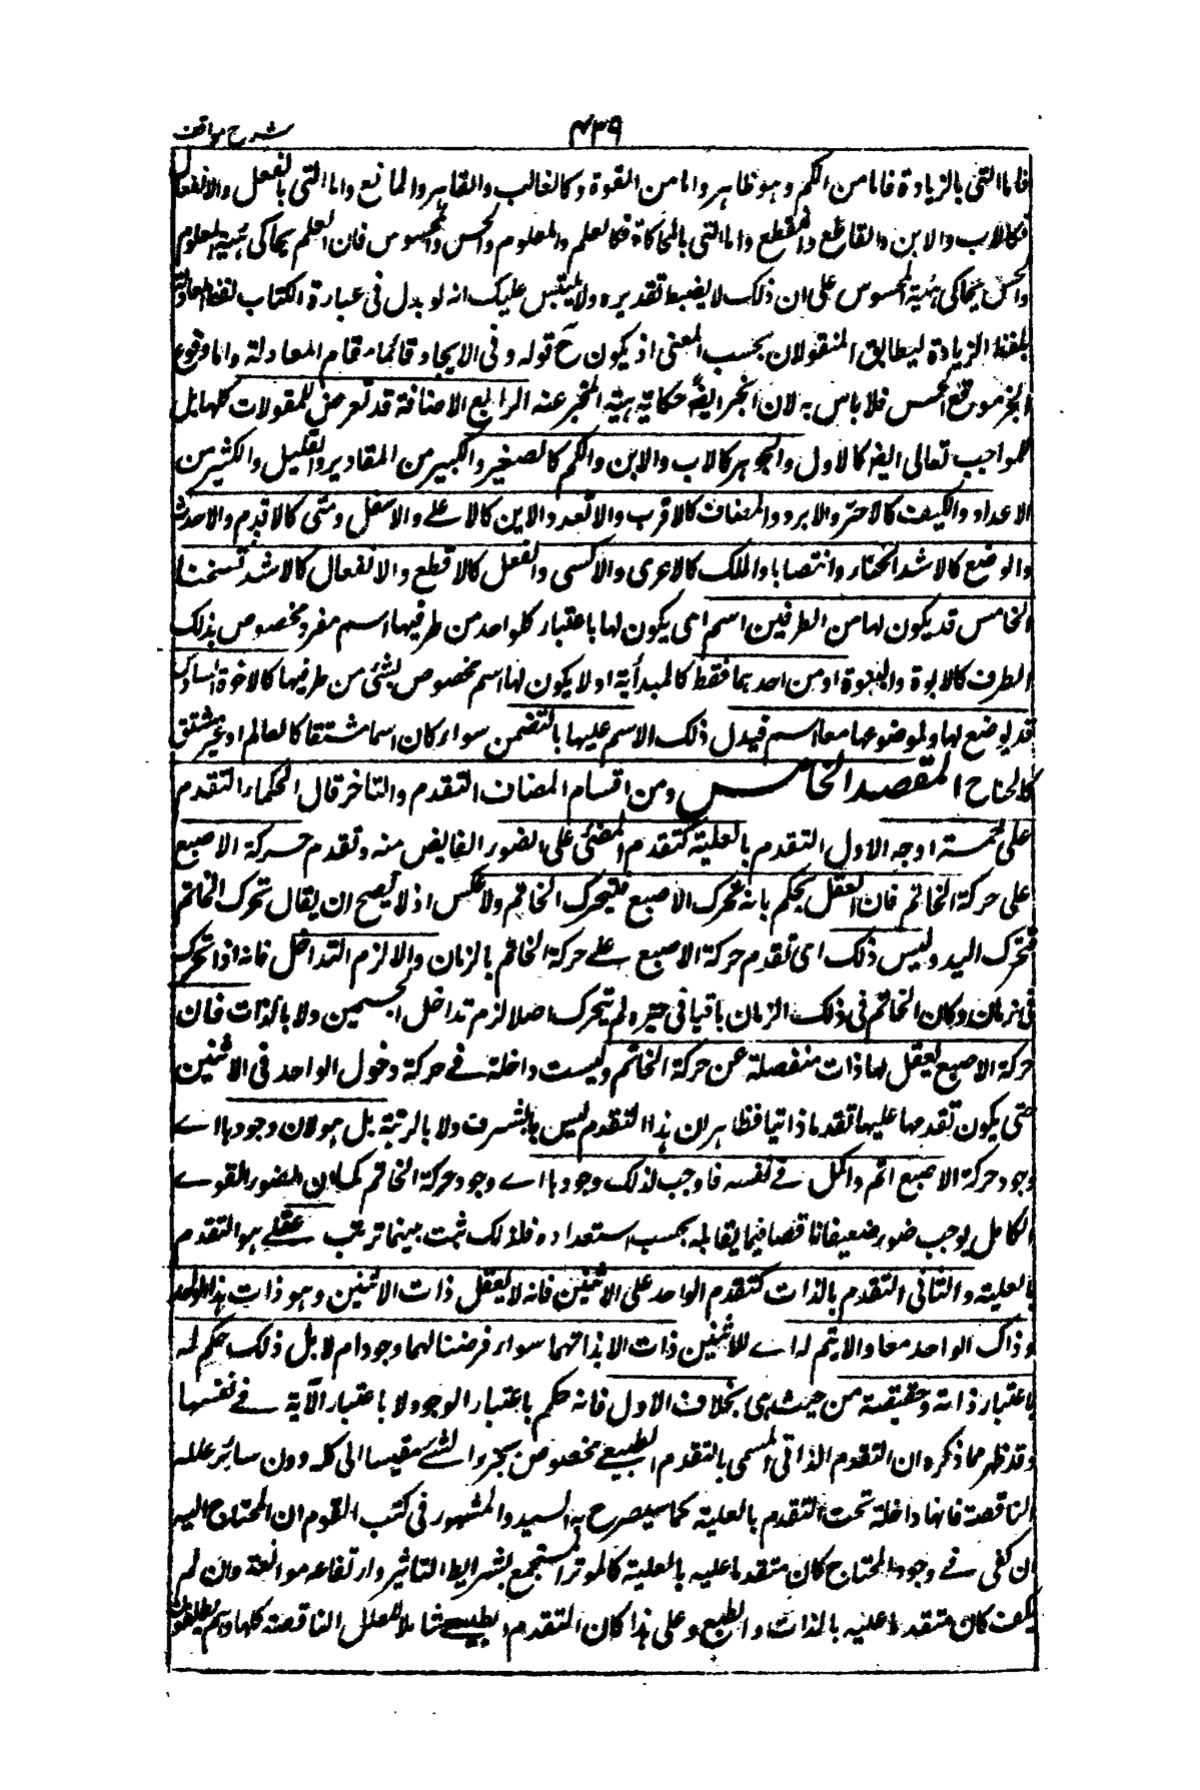 شرح مواقف
۴۳۹
فاما التى بالزيادة فاما من الكم وهو ظاهر واما من القوة فكالغالب والقاهر والمانع واما التى بالفعل والانفعال
فكالاب والابن والقاطع والمنقطع واما التى بالمحاكاة فكالعلم والمعلوم والحس والمحسوس فان العلم يحاكى هيئة المعلوم
والحس يحاكى هيئة المحسوس على ان ذلك لا يضبط تقديره ولا يلتبس عليك انه لو بدل فى عبارة الكتاب لفظ المعادلة
بلفظ الزيادة ليطابق المنقولان بحسب المعنى اذ يكون ح قوله وفى الايجاد قائما مقام المعادلة واما وقوع
الخبر موقع الحس فلا باس به لان الخبر ايضا حكاية هيئة المخبر عنه الرابع الاضافة قد تعرض للمقولات كلها بل
للواجب تعالى ايضا كالاول والجوهر كالاب والابن والكم كالصغير والكبير من المقادير والقليل والكثير من
الاعداد والكيف كالاحر والابرد والمضاف كالاقرب والابعد والاين كالاعلے والاسفل ومتى كالاقدم والاحدث
والوضع كالاشد انحناء وانتصابا والملك كالاعرى والاكسى والفعل كالاقطع والانفعال كالاشد تسخنا
الخامس قد يكون لها من الطرفين اسم اى يكون لها باعتبار كل واحد من طرفيها اسم مفرد مخصوص بذلك
الطرف كالابوة والبنوة او من احدهما فقط كالمبدأية او لا يكون لها اسم مخصوص بشئ من طرفيها كالاخوة السادس
قد يوضع لها ولموضوعها معا اسم فيدل ذلك الاسم عليها بالتضمن سواء كان اسما مشتقا كالعالم او غير مشتق
كالجناح المقصد الخامس ومن اقسام المضاف التقدم والتاخر قال الحكماء التقدم
على خمسة اوجه الاول التقدم بالعلية كتقدم المضئ على الضوء الفايض منه وتقدم حركة الاصبع
على حركة الخاتم فان العقل يحكم بانه تحرك الاصبع فتحرك الخاتم ولا عكس اذ لا يصح ان يقال تحرك الخاتم
فتحرك اليد وليس ذلك اى تقدم حركة الاصبع علے حركة الخاتم بالزمان والا لزم التداخل فانه اذا تحرك
فى زمان وكان الخاتم فى ذلك الزمان باقيا فى حيزه لم يتحرك اصلا لزم تداخل الجسمين ولا بالذات فان
حركة الاصبع يعقل لها ذات منفصلة عن حركة الخاتم وليست داخلة فے حركة دخول الواحد فى الاثنين
حتى يكون تقدمها عليها تقدما ذاتيا فظاهر ان هذا التقدم ليس بالشرف ولا بالرتبة بل هو لان وجودها اے
وجود حركة الاصبع اتم واكمل فے نفسه فاوجب لذلك وجودها اے وجود حركة الخاتم كما ان الضوء القوے
الكامل يوجب ضوءا ضعيفا ناقصا فيما يقابله بحسب استعداده فلذلك ثبت بينهما ترتب عقلے هو التقدم
بالعلية والثانى التقدم بالذات كتقدم الواحد على الاثنين فانه لا يعقل ذات الاثنين وهو ذات هذا الواحد
وذاك الواحد معا والا يتم له اے للاثنين ذات الا بذاتهما سواء فرضنا لهما وجود ام لا بل ذلك حكم له
باعتبار ذاته وحقيقته من حيث هى بخلاف الاول فانه حكم باعتبار الوجود لا باعتبار الآية فے نفسها
وقد ظهر مما ذكره ان التقدم الذاتى المسمى بالتقدم الطبيعے مخصوص بجزء الشئ مقيسا الى كله دون سائر علله
الناقصة فانها داخلة تحت التقدم بالعلية كما سيصرح به السيد والمشهور فى كتب القوم ان المحتاج اليه
ان كفى فے وجود المحتاج كان متقدما عليه بالعلية كالموثر المستجمع بشرايط التاثير وارتفاع موانعه وان لم
يكف كان متقدما عليه بالذات والطبع وعلى هذا كان التقدم الطبيعے شاملا للعلل الناقصة كلها